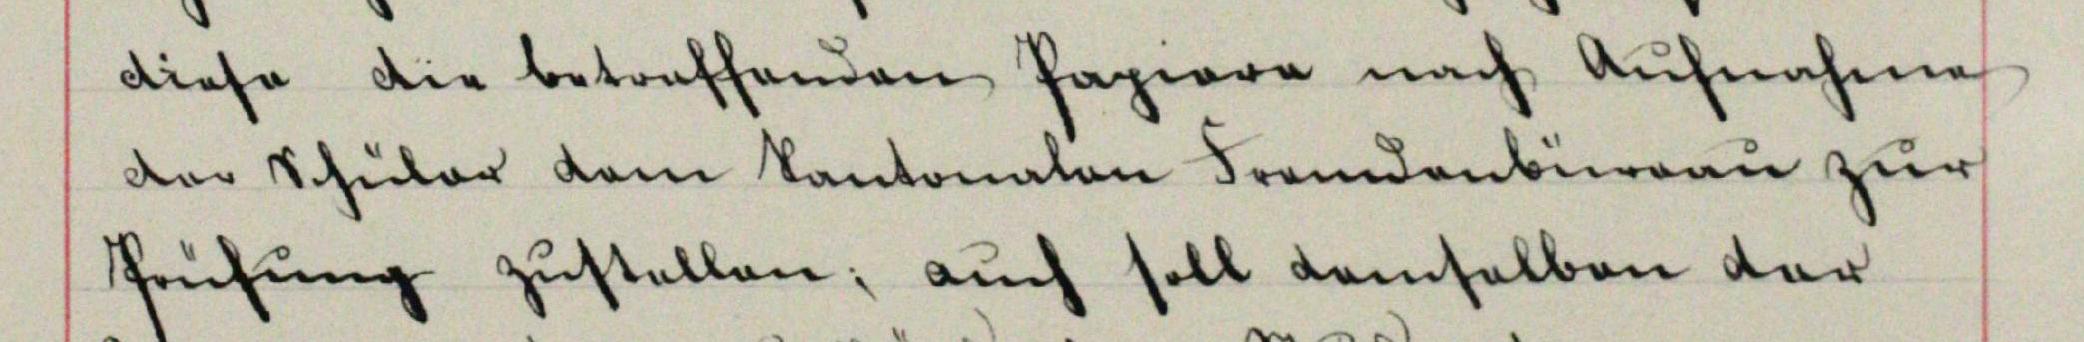 diese die betreffenden Papiere nach Aufnahme
der Schüler dem kantonalen Fremdenbüreau zur
Prüfung zustellen; auch soll demselben der